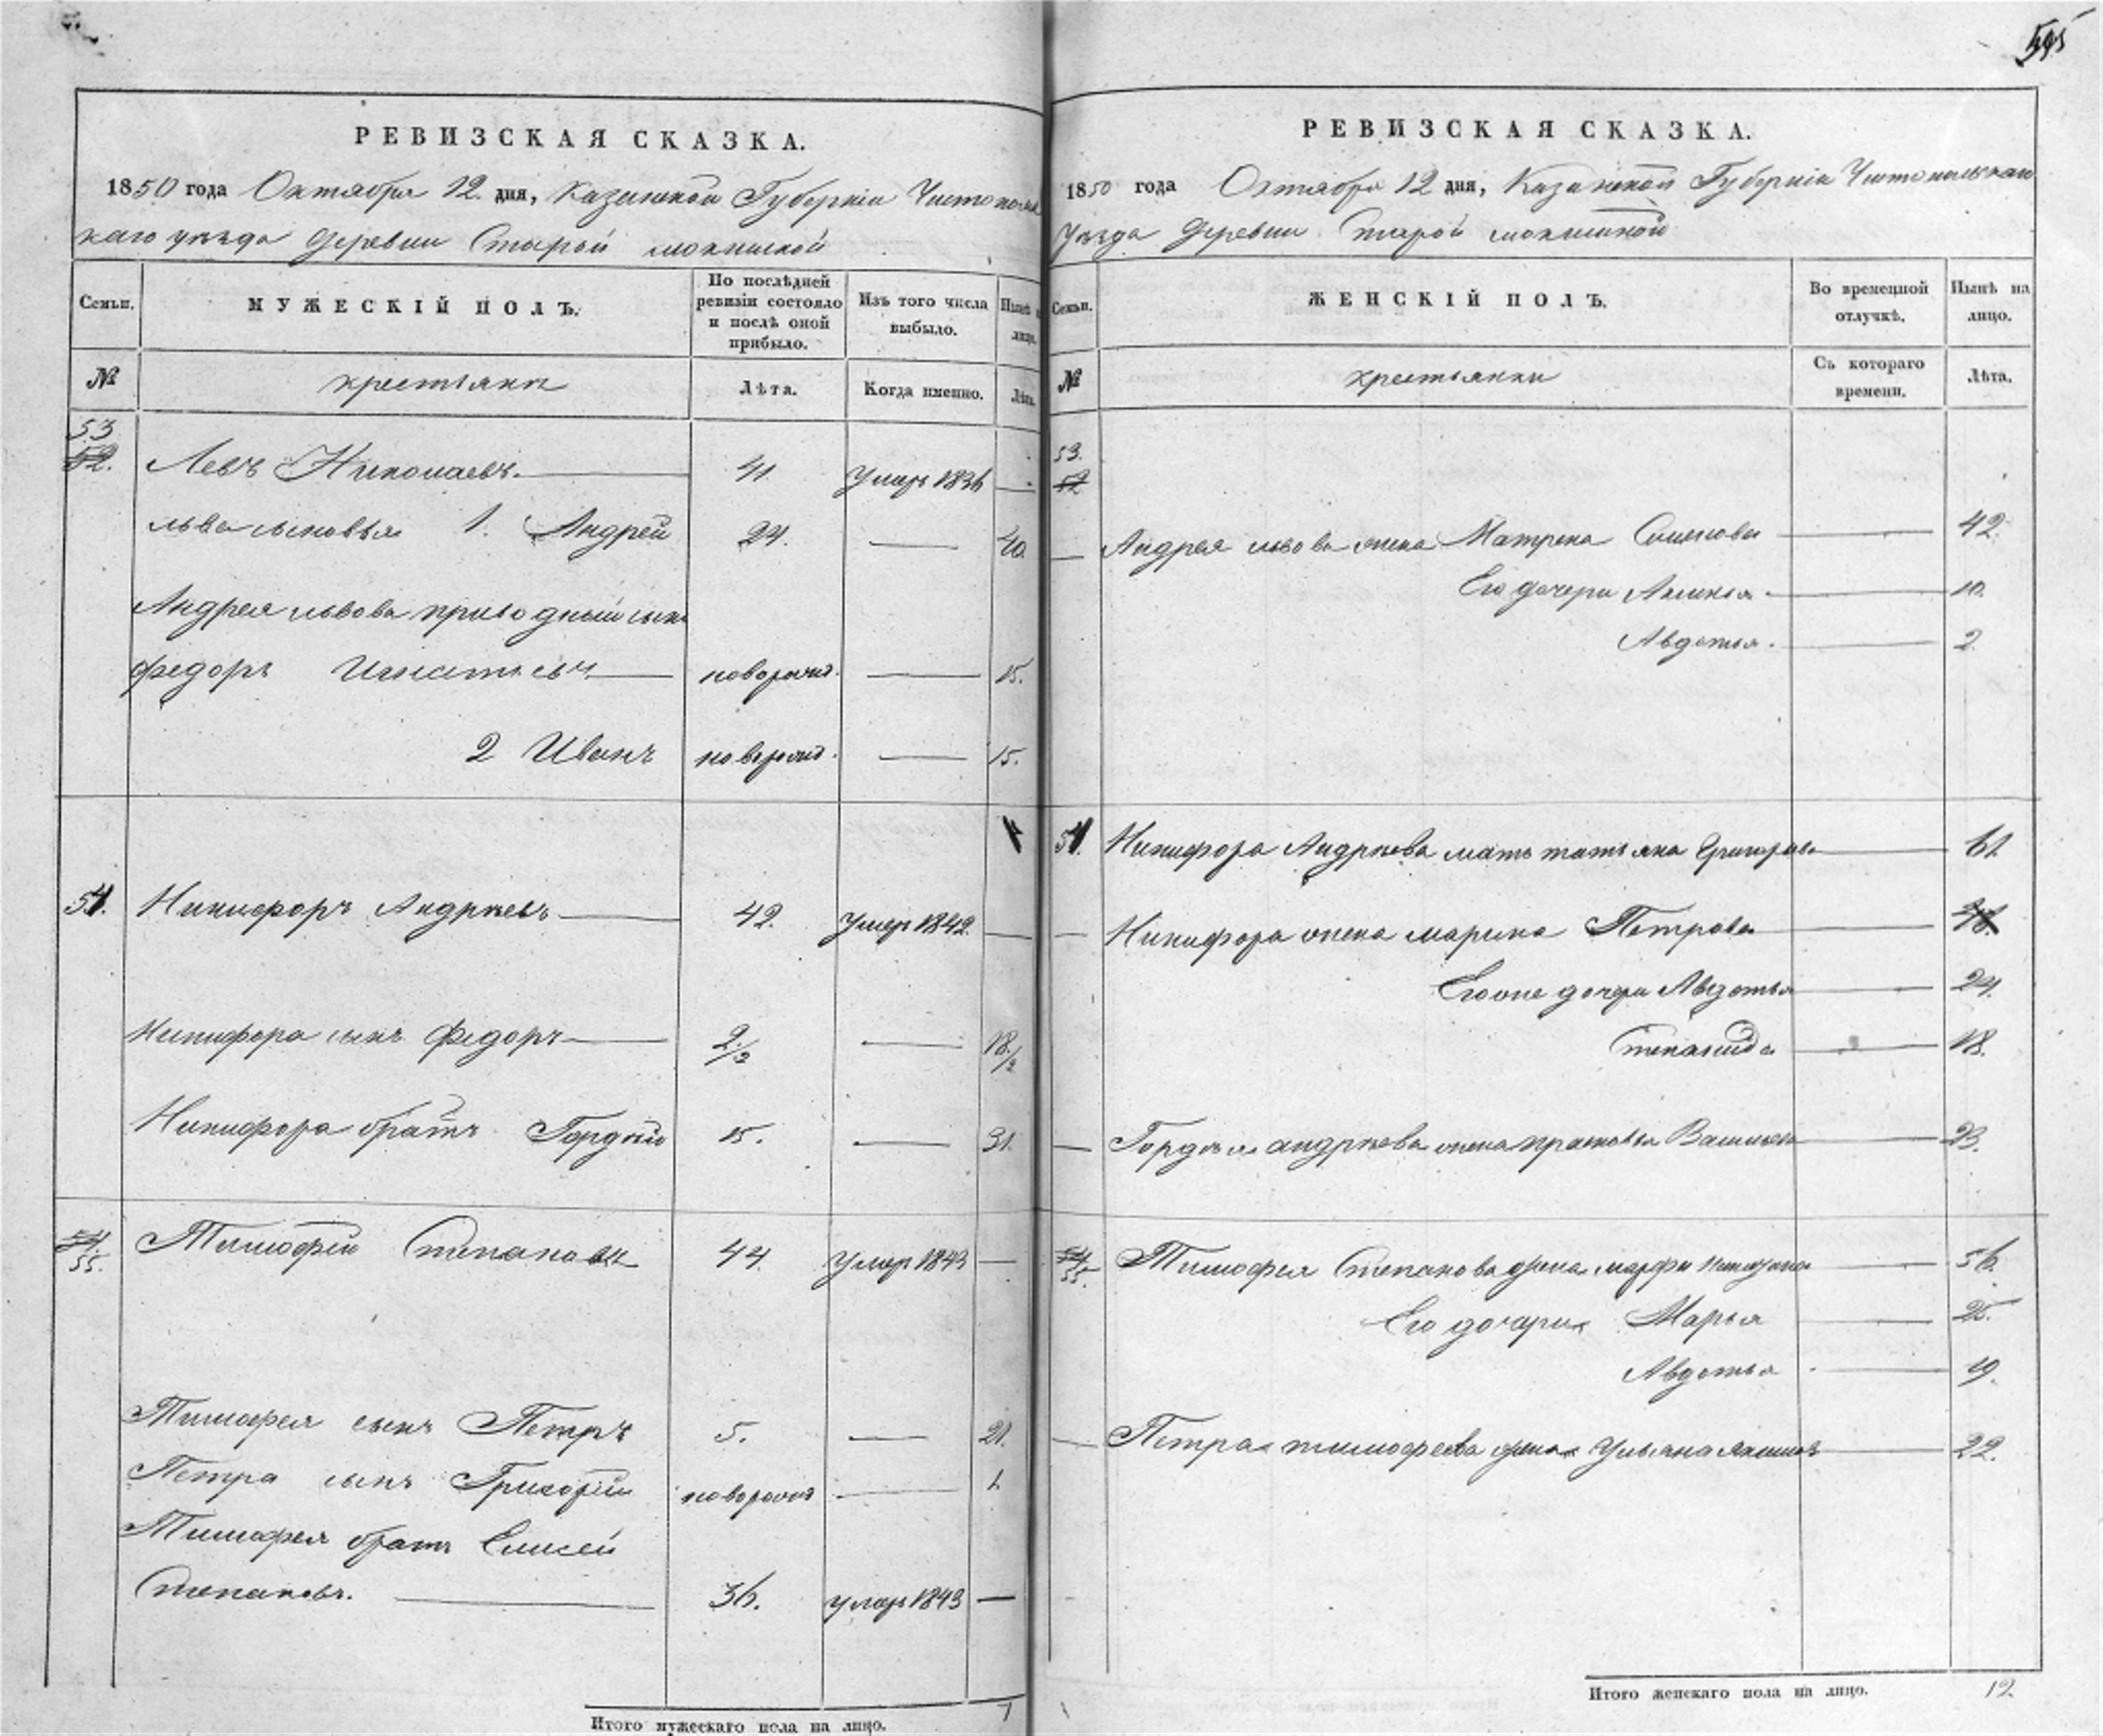 595
РЕВИЗСКАЯ СКАЗКА.
1850 года Октября 12. дня, Казанской Губернии Чистополь
скаго уѣзда деревни Старой мокшиской
Семьи.
МУЖЕСКІЙ ПОЛЪ.
По послѣдней ревизіи состояло и послѣ оной прибыло.
Изъ того числа выбыло.
Нынѣ на лицо.
№
крестьяни
Лѣта.
Когда именно.
Лѣта.
53
52. Левъ Николаевъ. 41 Умеръ 1836
Льва сыновья 1. Андрей 24. 40
Андрея Львова приводный сынъ
Федоръ Игнатьевъ новорожд. 15.
2 Иванъ новорожд. 15.
54. Никифоръ Андрѣевъ 42. Умер 1842.
Никифора сынъ Федоръ 2 1/2 18 1/2
Никифора братъ Гордѣй 15. 31.
54.
55. Тимофей Степановъ 44. Умер 1843
Тимофея сынъ Петръ 5. 21.
Петра сынъ Григорій новорожд 1
Тимофея братъ Елисей
Степановъ. 36. умер 1843
Итого мужескаго пола на лицо. 7
РЕВИЗСКАЯ СКАЗКА.
1850 года Октября 12 дня, Казанской Губерніи Чистопольскаго
Уѣзда Деревни Старой мокшиской
Семьи.
ЖЕНСКІЙ ПОЛЪ.
Во временной отлучкѣ.
Нынѣ на лицо.
№
крестьянки
Съ котораго времени.
Лѣта.
53.
52
Андрея Львова жена Матрена Семенова 42.
Его дочери Акулина 10.
Авдотья. 2.
54. Никифора Андрѣева мать татьяна Григорьева 61
Никифора жена марина Петрова
Егоже дочери Авдотья 24.
Степанида 18.
Гордѣя андрѣева жена прасковья Васильева 23.
54.
55. Тимофея Степанова жена марфа Никифорова 56.
Его дочери Марья 25.
Авдотья 19.
Петра тимофеева жена Ульяна 22.
Итого женскаго пола на лицо. 12.